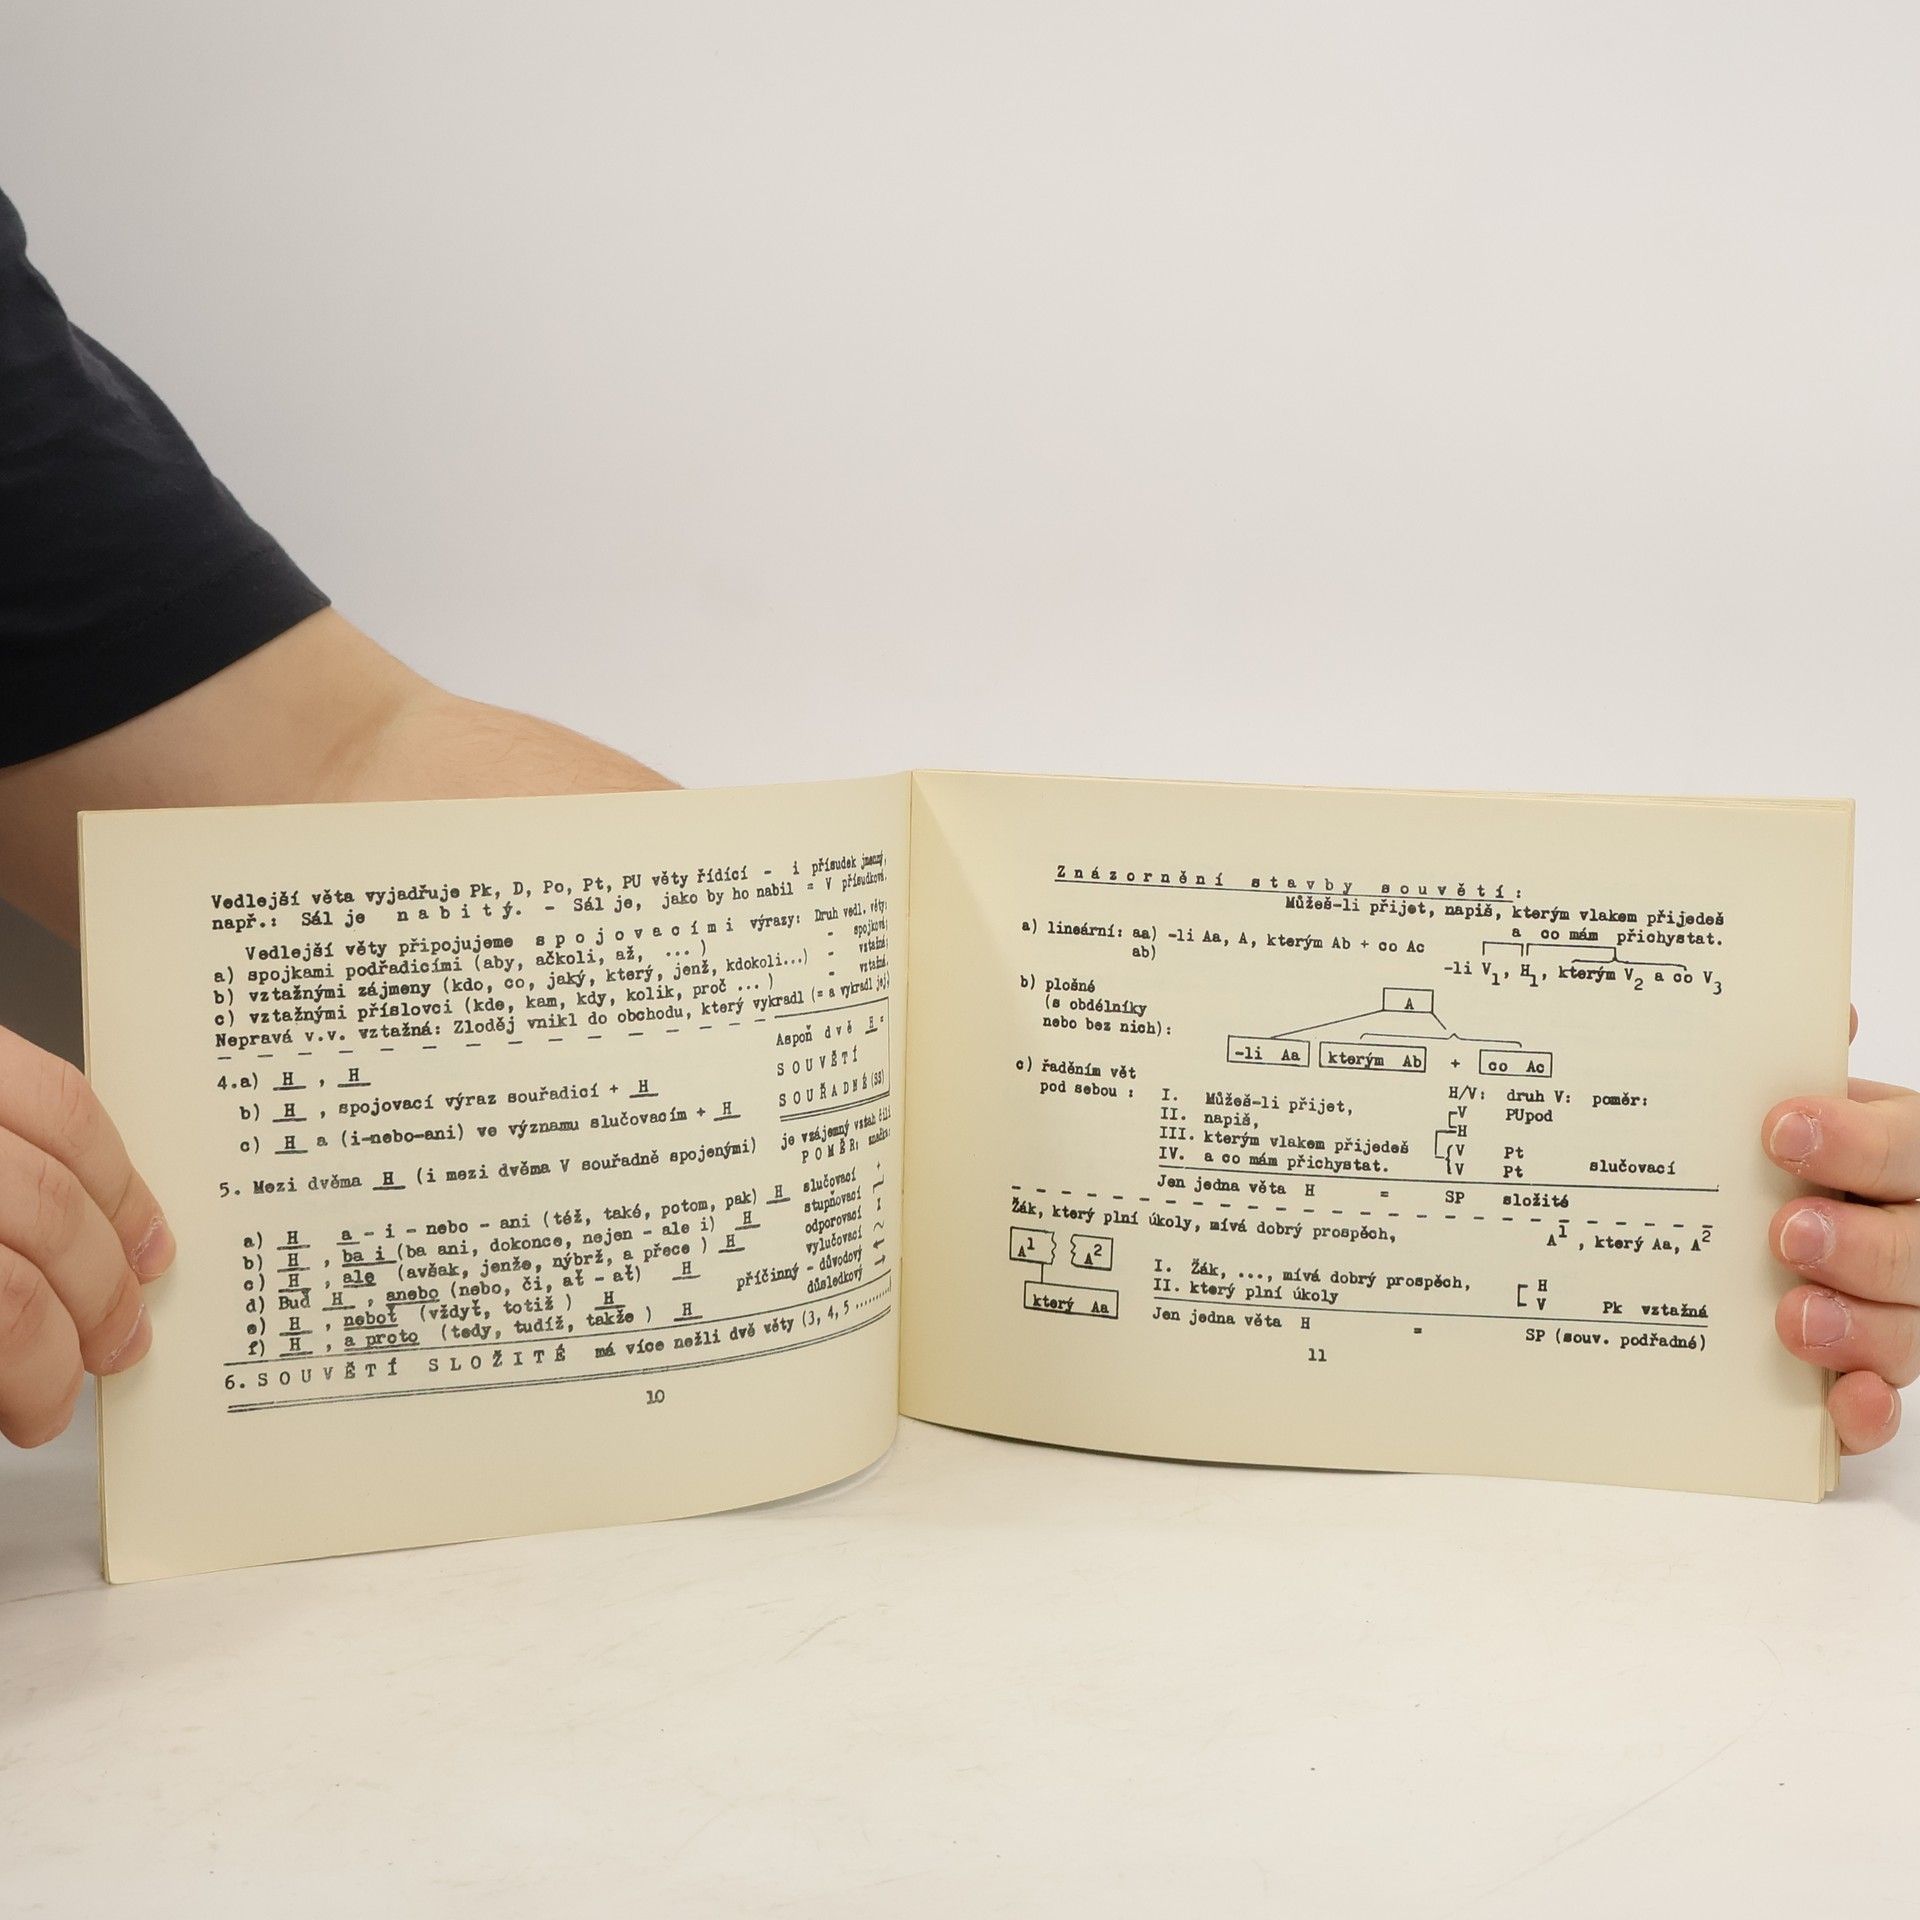 Vedlejší věta vyjadřuje Pk, D, Po, Pt, PU věty řídící - i přísudek jmenný,
např.: Sál je n a b i t ý. - Sál je, jako by ho nabil = V přísudková.
Vedlejší věty připojujeme s p o j o v a c í m i výrazy: Druh vedl. věty:
a) spojkami podřadicími (aby, ačkoli, až, ... ) - spojková;
b) vztažnými zájmeny (kdo, co, jaký, který, jenž, kdokoli...) - vztažná;
c) vztažnými příslovci (kde, kam, kdy, kolik, proč ... ) - vztažná.
Nepravá v.v. vztažná: Zloděj vnikl do obchodu, který vykradl (= a vykradl jej)
Aspoň dvě H =
S O U V Ě T Í
S O U Ř A D N É (SS)
4.a) H , H
b) H , spojovací výraz souřadicí + H
c) H a (i-nebo-ani) ve významu slučovacím + H
5. Mezi dvěma H (i mezi dvěma V souřadně spojenými) je vzájemný vztah čili
P O M Ě R; značka:
a) H a - i - nebo - ani (též, také, potom, pak) H slučovací +
b) H , ba i (ba ani, dokonce, nejen - ale i) H stupňovací
c) H , ale (avšak, jenže, nýbrž, a přece ) H odporovací
d) Buď H , anebo (nebo, či, ať - ať) H vylučovací ~
e) H , neboť (vždyť, totiž ) H příčinný - důvodový ←
f) H , a proto (tedy, tudíž, takže ) H důsledkový →
6. S O U V Ě T Í S L O Ž I T É má více nežli dvě věty (3, 4, 5 .........)
10
Z n á z o r n ě n í s t a v b y s o u v ě t í :
Můžeš-li přijet, napiš, kterým vlakem přijedeš
a co mám přichystat.
a) lineární: aa) -li Aa, A, kterým Ab + co Ac
ab) -li V1, H1, kterým V2 a co V3
b) plošné
(s obdélníky
nebo bez nich):
A
-li Aa kterým Ab + co Ac
c) řaděním vět
pod sebou :
H/V: druh V: poměr:
I. Můžeš-li přijet, V PUpod
II. napiš, H
III. kterým vlakem přijedeš V Pt
IV. a co mám přichystat. V Pt slučovací
Jen jedna věta H = SP složité
Žák, který plní úkoly, mívá dobrý prospěch, A1 , který Aa, A2
A1 A2
který Aa
I. Žák, ..., mívá dobrý prospěch, H
II. který plní úkoly V Pk vztažná
Jen jedna věta H = SP (souv. podřadné)
11